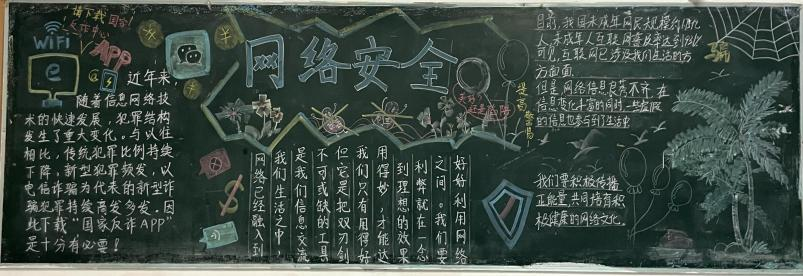 请下载国家
反诈中心
APP
WiFi
e
近年来，
随着信息网络技
术的快速发展，犯罪结构
发生了重大变化。与以往
相比，传统犯罪比例持续
下降，新型犯罪频发，以
电信诈骗为代表的新型诈
骗犯罪持续高发多发。因
此下载“国家反诈APP”
是十分有必要！
网络安全
提高警惕
骗
好好利用网络
之间。我们要
利弊就在一念
到理想的效果
用得妙，才能达
我们只有用得好
但它是把双刃剑
不可或缺的工具
是我们信息交流
我们生活之中，
网络已经融入到
目前，我国未成年网民规模约
未成年人互联网普及率达到
可见，互联网已涉及我们生活的方
方面面
但是，网络信息良莠不齐，在
信息变化丰富的同时，一些
的信息也参与到了生活中
我们要积极传播
正能量，共同培育积
极健康的网络文化。